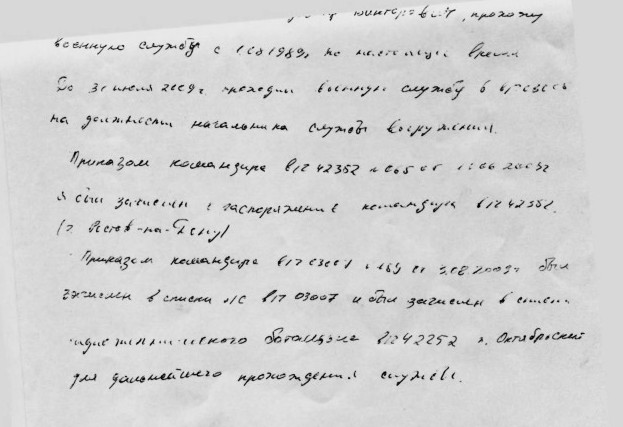 Викторович, прохожу
военную службу с 1.08.1989г по настоящее время
До 31 июля 2009г. проходил военную службу в
на должности начальника службы вооружения.
Приказом командира в/ч 42352
я был зачислен в распоряжение командира в/ч 42352.
(г. Ростов-на-Дону)
Приказом командира в/ч был
зачислен в списки л/с в/ч 03007 и был зачислен в списки
батальона в/ч 42252 п. Октябрьский
для дальнейшего прохождения службы.